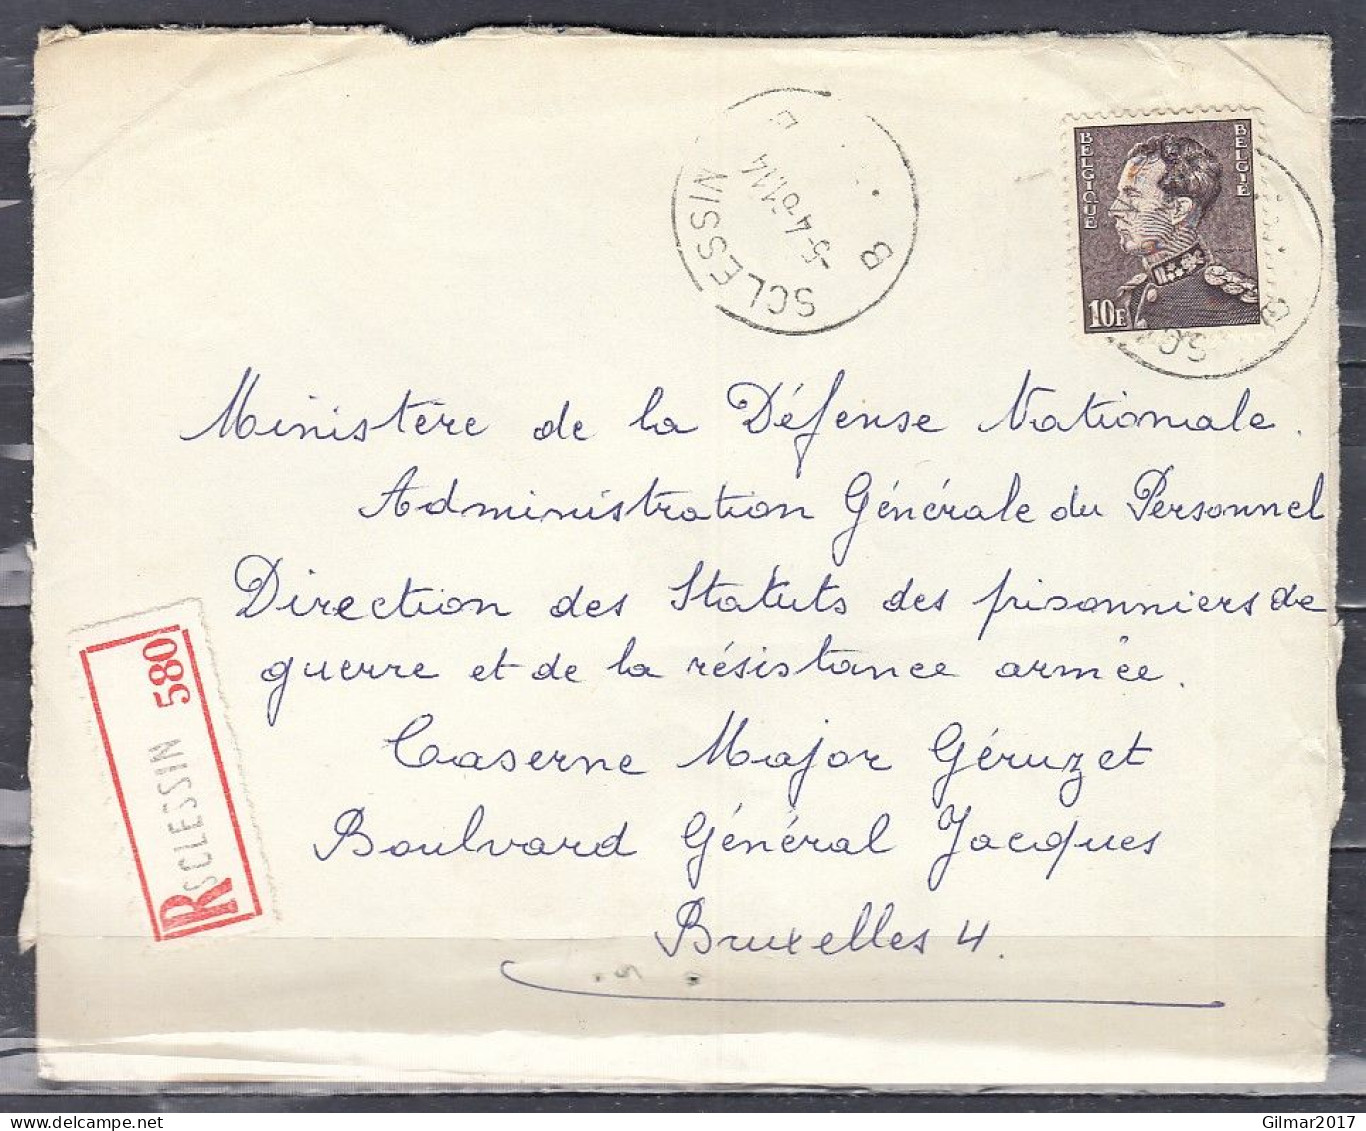 SCLESSIN
B
BELGIQUE
BELGIË
10F
Ministère de la Défense Nationale.
Administration Générale du Personnel
Direction des Statuts des prisonniers de
guerre et de la résistance armée.
Caserne Major Géruzet
Boulvard Général Jacques
Bruxelles 4.
R SCLESSIN 580
delcampe.net
Gilmar2017